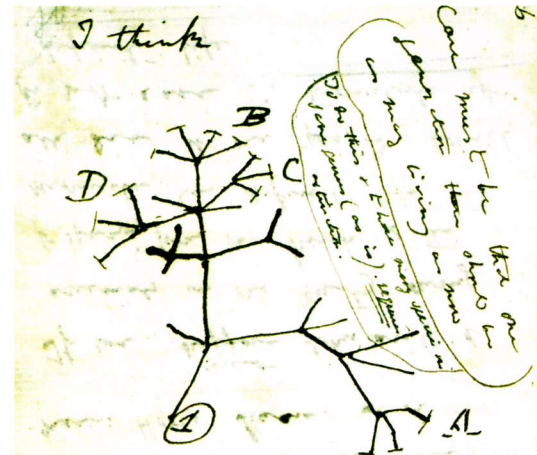 I think
B
D
C
A
1
Case must be that one
generation then should be
as many living as now
To do this & to have many species in
same genus (as is) requires
extinction.